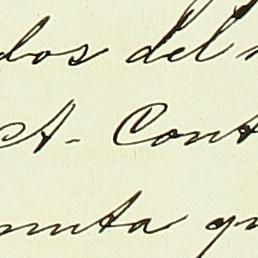 dos del
A- Cont
nuta qu